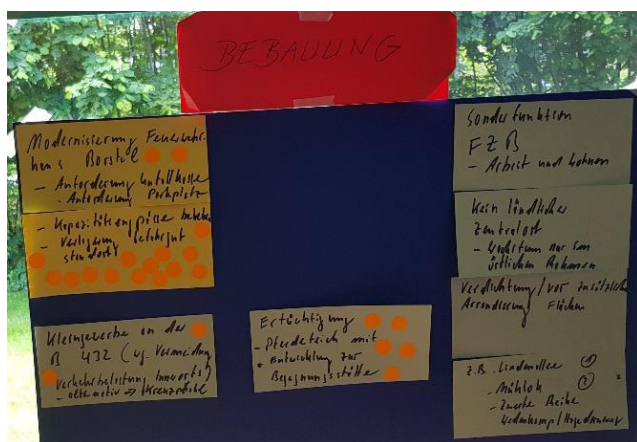 BEBAUUNG
Modernisierung Feuerwehr-
haus Borstel
- Anforderung Unfallkasse
- Anforderung Parkplätze
- Kapazitätsengpässe beheben
- Verlegung
standort
Kleingewerbe an der
B 432 (wg. Vermeidung
Verkehrsbelastung Innerorts)
- alternativ => Kiesgrube
Ertüchtigung
- Pferdeteich mit
Entwicklung zur
Begegnungsstätte
Sonderfunktion
FZB
- Arbeit und Wohnen
Kein ländlicher
Zentralort
- Wachstum nur im
örtlichen Rahmen
Verdichtung / vor zusätzliche
Arrondierung Flächen
z.B. Lindenallee 1
- Mühloh 2
- Zweite Reihe